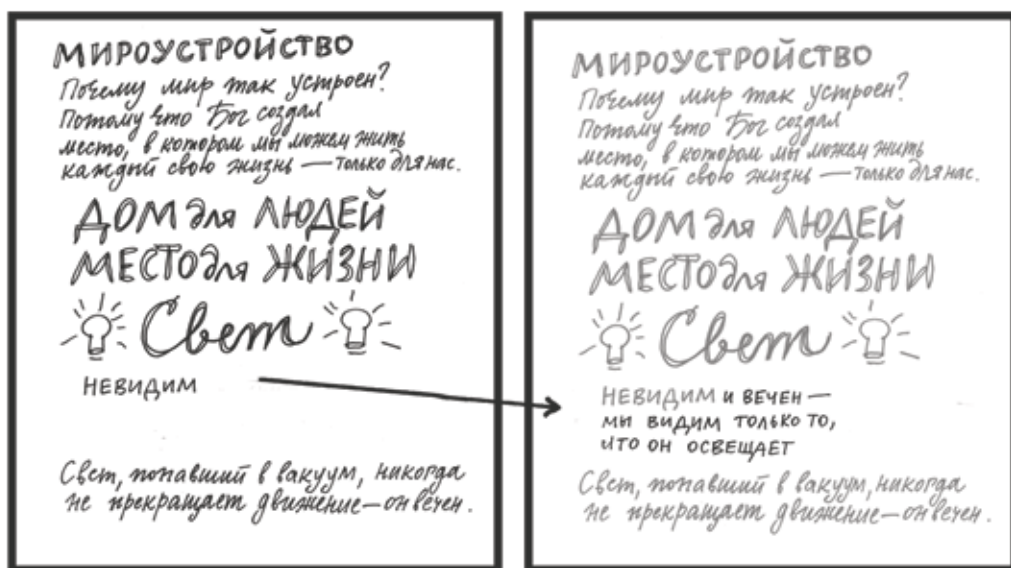 МИРОУСТРОЙСТВО
Почему мир так устроен?
Потому что Бог создал
место, в котором мы можем жить
каждый свою жизнь — только для нас.
ДОМ для ЛЮДЕЙ
МЕСТО для ЖИЗНИ
Свет
НЕВИДИМ
Свет, попавший в вакуум, никогда
не прекращает движение — он вечен.
МИРОУСТРОЙСТВО
Почему мир так устроен?
Потому что Бог создал
место, в котором мы можем жить
каждый свою жизнь — только для нас.
ДОМ для ЛЮДЕЙ
МЕСТО для ЖИЗНИ
Свет
НЕВИДИМ И ВЕЧЕН —
МЫ ВИДИМ ТОЛЬКО ТО,
ЧТО ОН ОСВЕЩАЕТ
Свет, попавший в вакуум, никогда
не прекращает движение — он вечен.